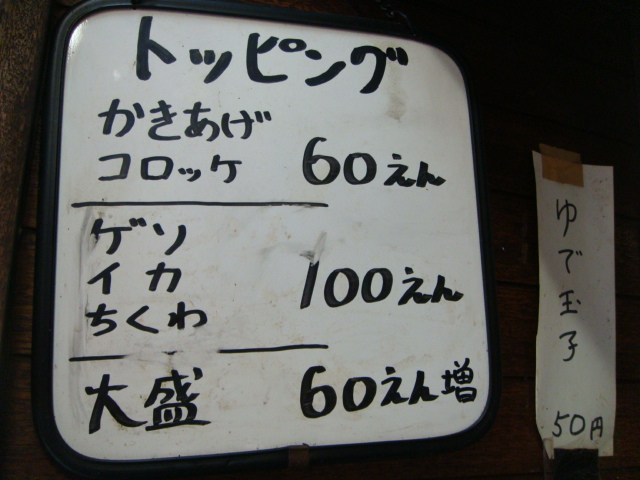 トッピング
かきあげ
コロッケ 60えん
ゲソ
イカ 100えん
ちくわ
大盛 60えん増
ゆで玉子 50円